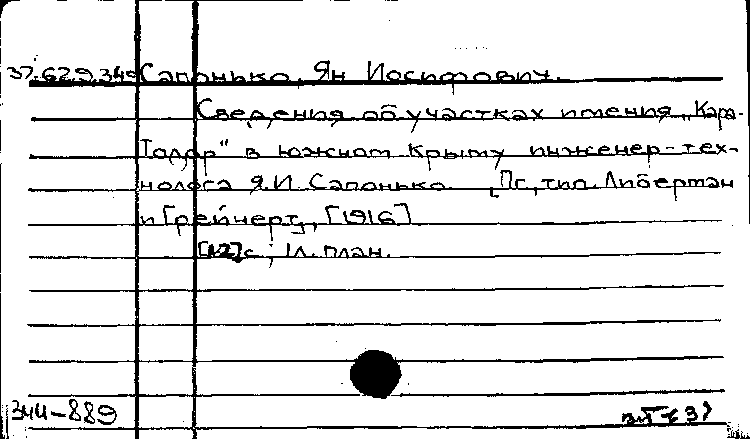 37.629.349 Сапонько, Ян Иосифович.
Сведения об участках имения „Кара-
Тодор" в южном Крыму инженер-тех-
нолога Я.И. Сапонько. [Пг., тип. Либерман
и Грейнерт], [1916]
[12] с., 1 л. план.
344-889